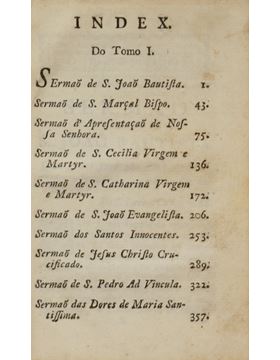 INDEX.
Do Tomo I.
SErmaõ de S. Joaõ Bautiſta. 1.
Sermaõ de S. Marçal Biſpo. 43.
Sermaõ d'Apreſentaçaõ de Noſ-
ſa Senhora. 75.
Sermaõ de S. Cecilia Virgem e
Martyr. 136.
Sermaõ de S. Catharina Virgem
e Martyr. 172.
Sermaõ de S. Joaõ Evangeliſta. 206.
Sermaõ dos Santos Innocentes. 253.
Sermaõ de Jeſus Chriſto Cru-
cificado. 289.
Sermaõ de S. Pedro Ad Vincula. 322.
Sermaõ das Dores de Maria San-
tiſſima. 357.